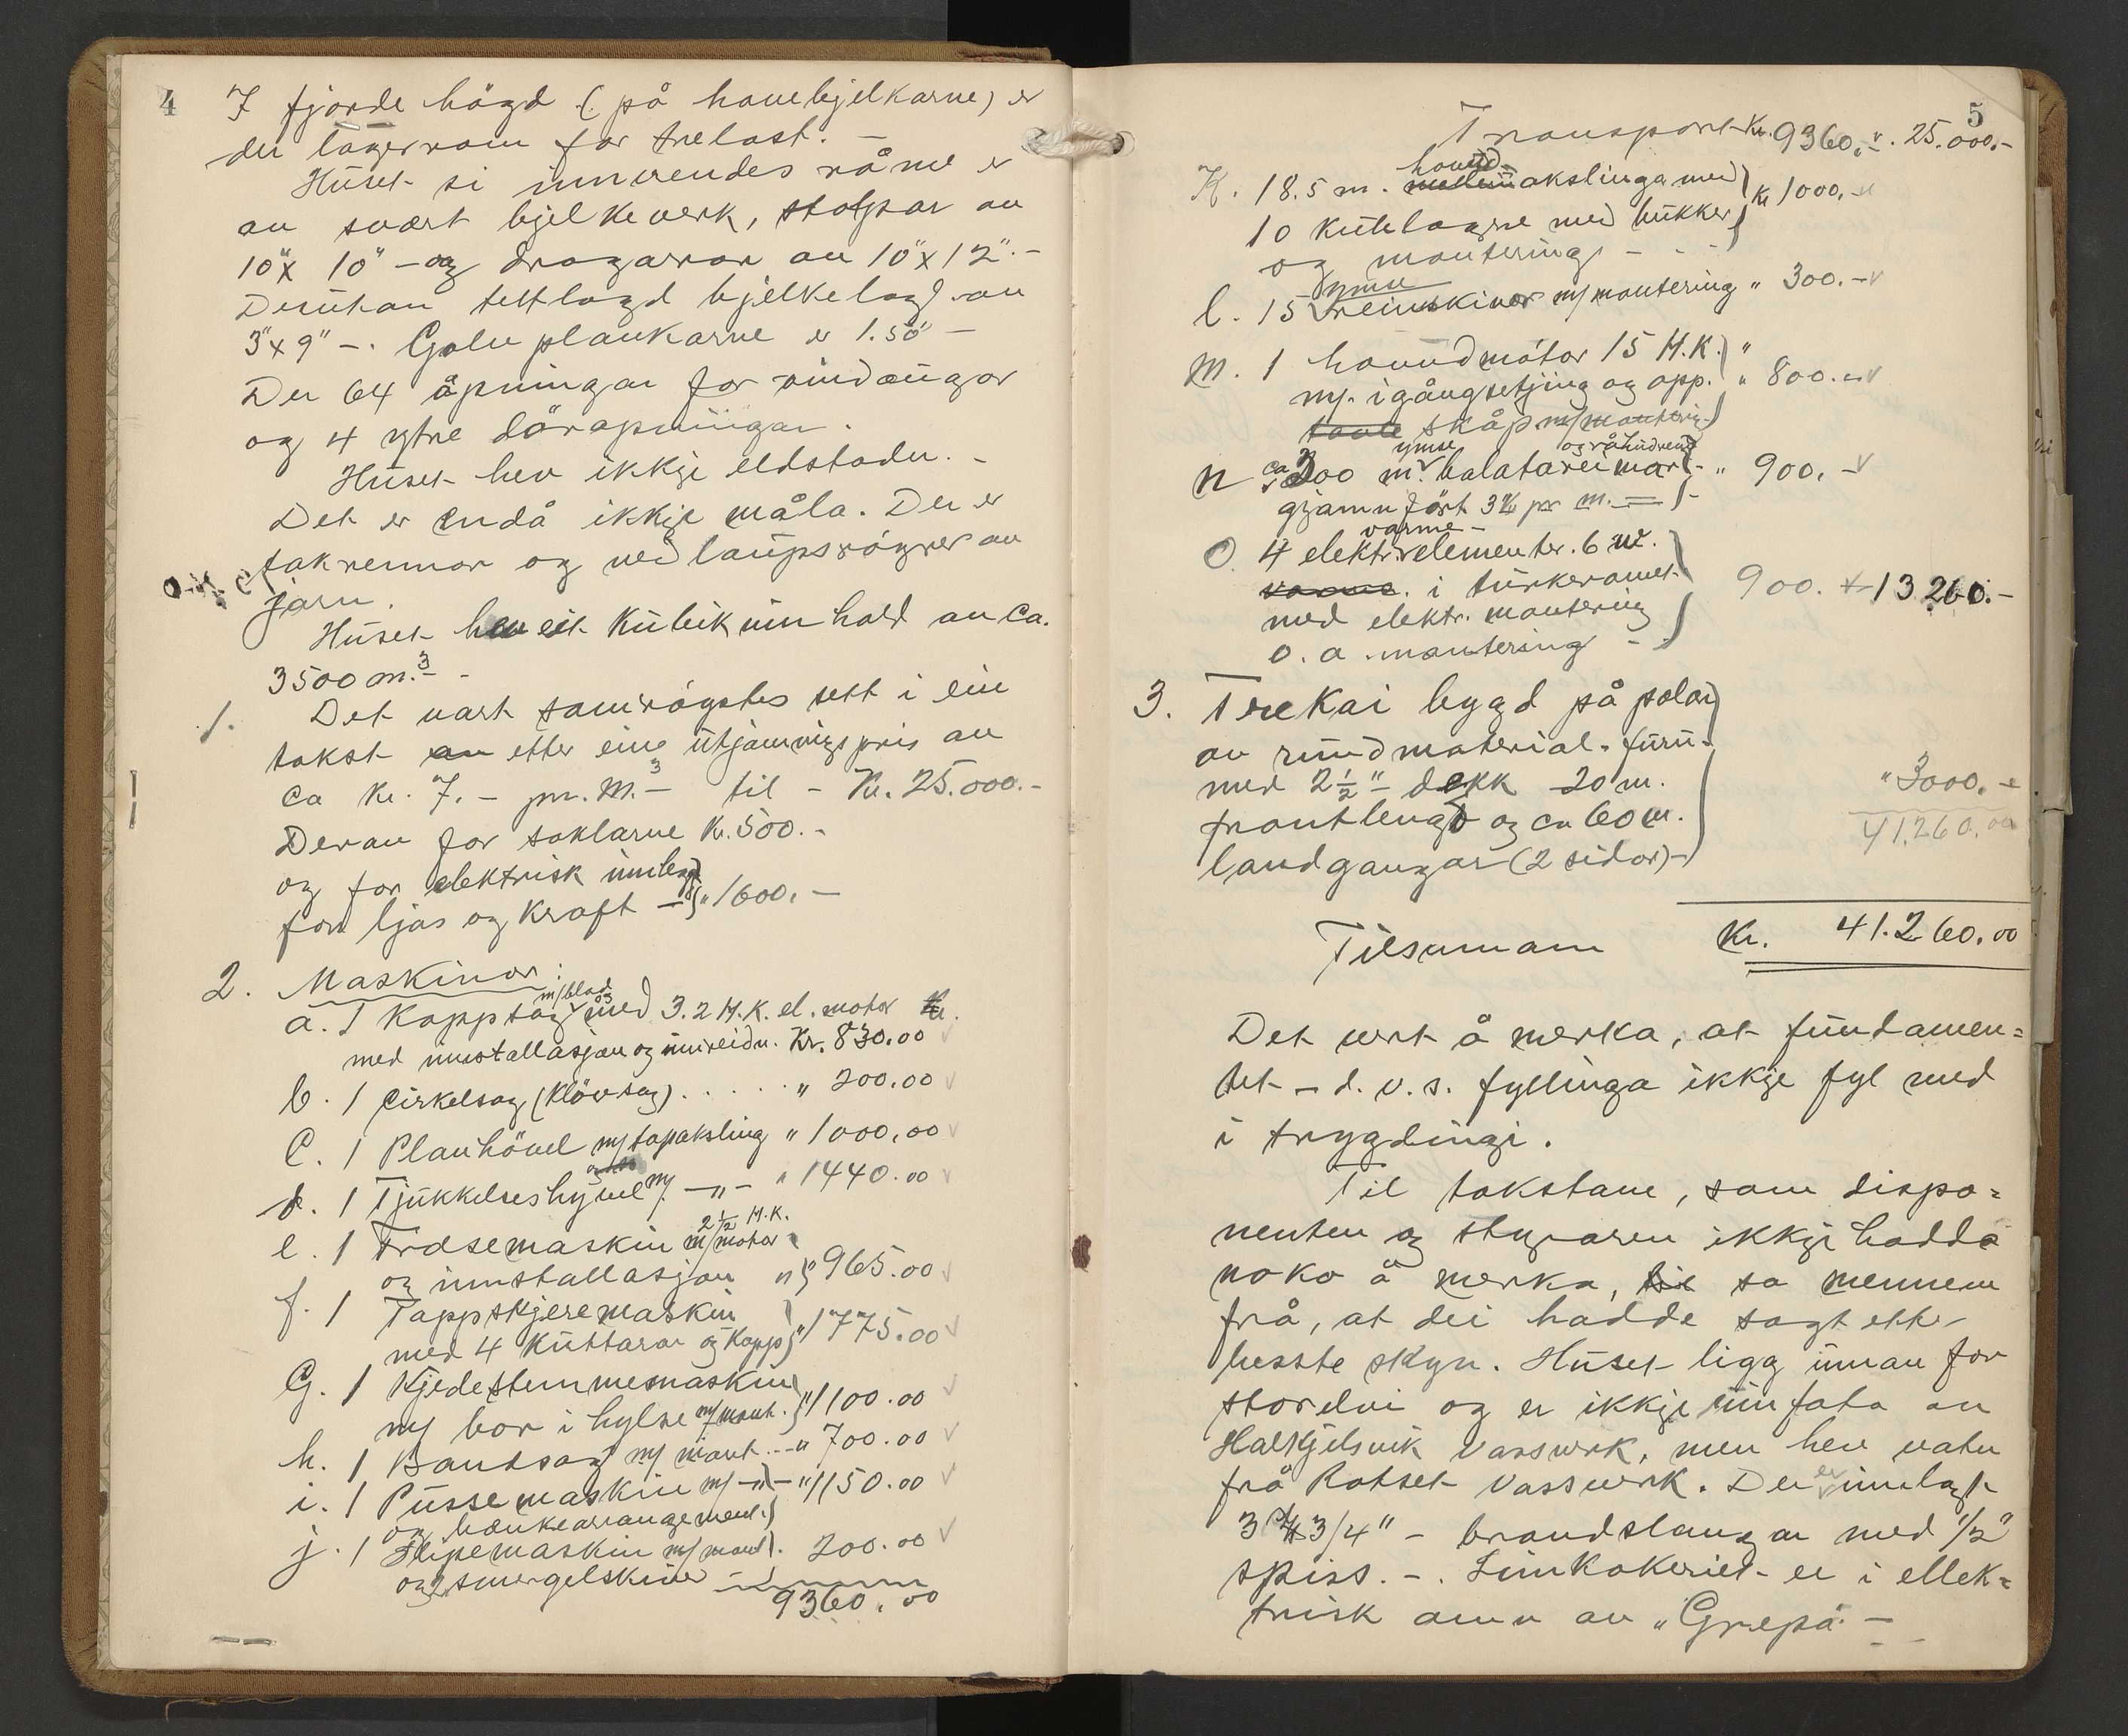 4
I fjorde högd (på hanebjelkarne) er
der lagerrom for trelast. —
Huset si innvendes råme er
av svært bjelkeverk, stolpar av
10"x 10" – og dragarar av 10"x12". –
Desutan tettlagd bjelkelag av
3"x9" –. Golvplankarne er 1.50" –
Der 64 åpningar for vindaugor
og 4 ytre dörapningar.
Huset hev ikkje eldstader. –
Det er endå ikkje måla. Der er
takrennor og nedlaupsröyrer av
jarn.
Huset hev eit kubikinnhald av ca.
3500 m.³ –
1. Det vart samröystes sett i ein
takst av etter eine utjamnigspris av
ca kr. 7. – pr. M.³ – til – Kr. 25.000. –
Derav for soklarne Kr. 500. –
og for elektrisk innlegg
for ljos og kraft – " 1600. –
2. Maskinor:
a. 1 Kappsag m/blad og med 3.2 H.K. el. motor Kr.
med installasjon og innreidn. Kr. 830.00
b. 1 Cirkelsag (Klövsag) . . . . . " 200.00
C. 1 Planhövel m/ tapaksling " 1000,00
d. 1 Tjukkelseshyvel m/ – " – " 1440.00
e. 1 Fræsemaskin m/motor 2½ H.K.
og innstallasjon " 965.00
f. 1 Tappskjeremaskin
med 4 kuttarar og Kapp " 1775.00
G. 1 Kjedestemmemaskin
m/ bor i hylse m/mont. " 1100.00
h. 1 Bandsag m/ mont. .. " 700.00
i. 1 Pussemaskin m/ – " – " 1150.00
og bænkearrangement.
j. 1 Slipemaskin m/mont. 200.00
og smergelskive
9360.00
5
Transport Kr. 9360. – ". 25.000. –
K. 18.5 m. hovud mellem akslinga med kr 1000. –
10 kulelagre med bukker
og montering –
l. 15 ymse reimskivor m/montering " 300. –
M. 1 hovudmotor 15 H.K. "
m/. igångsetjing og app. " 800. –
tavle skåp m/montering
n ca 300 m. ymse balatareimar og råhudreim – " 900. –
gjamnfört 3 kr pr m. –
O. 4 elektr. varme- elementer. 6 w.
varme. i turkeromet
med elektr. montering 900. + 13 260. –
o. a. montering –
3. Trekai bygd på polar
av rundmaterial. furu-
med 2½" – dekk 20 m.
frontlengd og ca 60 m.
landgangar (2 sidor) –
" 3000. –
41.260.00
Tilsumam Kr. 41.260.00
Det vert å merka, at fundamen=
tet – d. v. s. fyllinga ikkje fyl med
i trygdingi.
Til takstane, som dispo=
nenten og styraren ikkje hadde
noko å merka, til sa mennene
frå, at dei hadde sagt etter
besste skyn. Huset ligg innan for
storelvi og er ikkje innfata av
Halkjelsvik Vassverk, men hev vatn
frå Rotset Vassverk. Der er innlagt
3 stk 3/4" – brandslangar med 1/2"
spiss. –. Limkokeriet er i ellek=
trisk omn av "Grepa. –